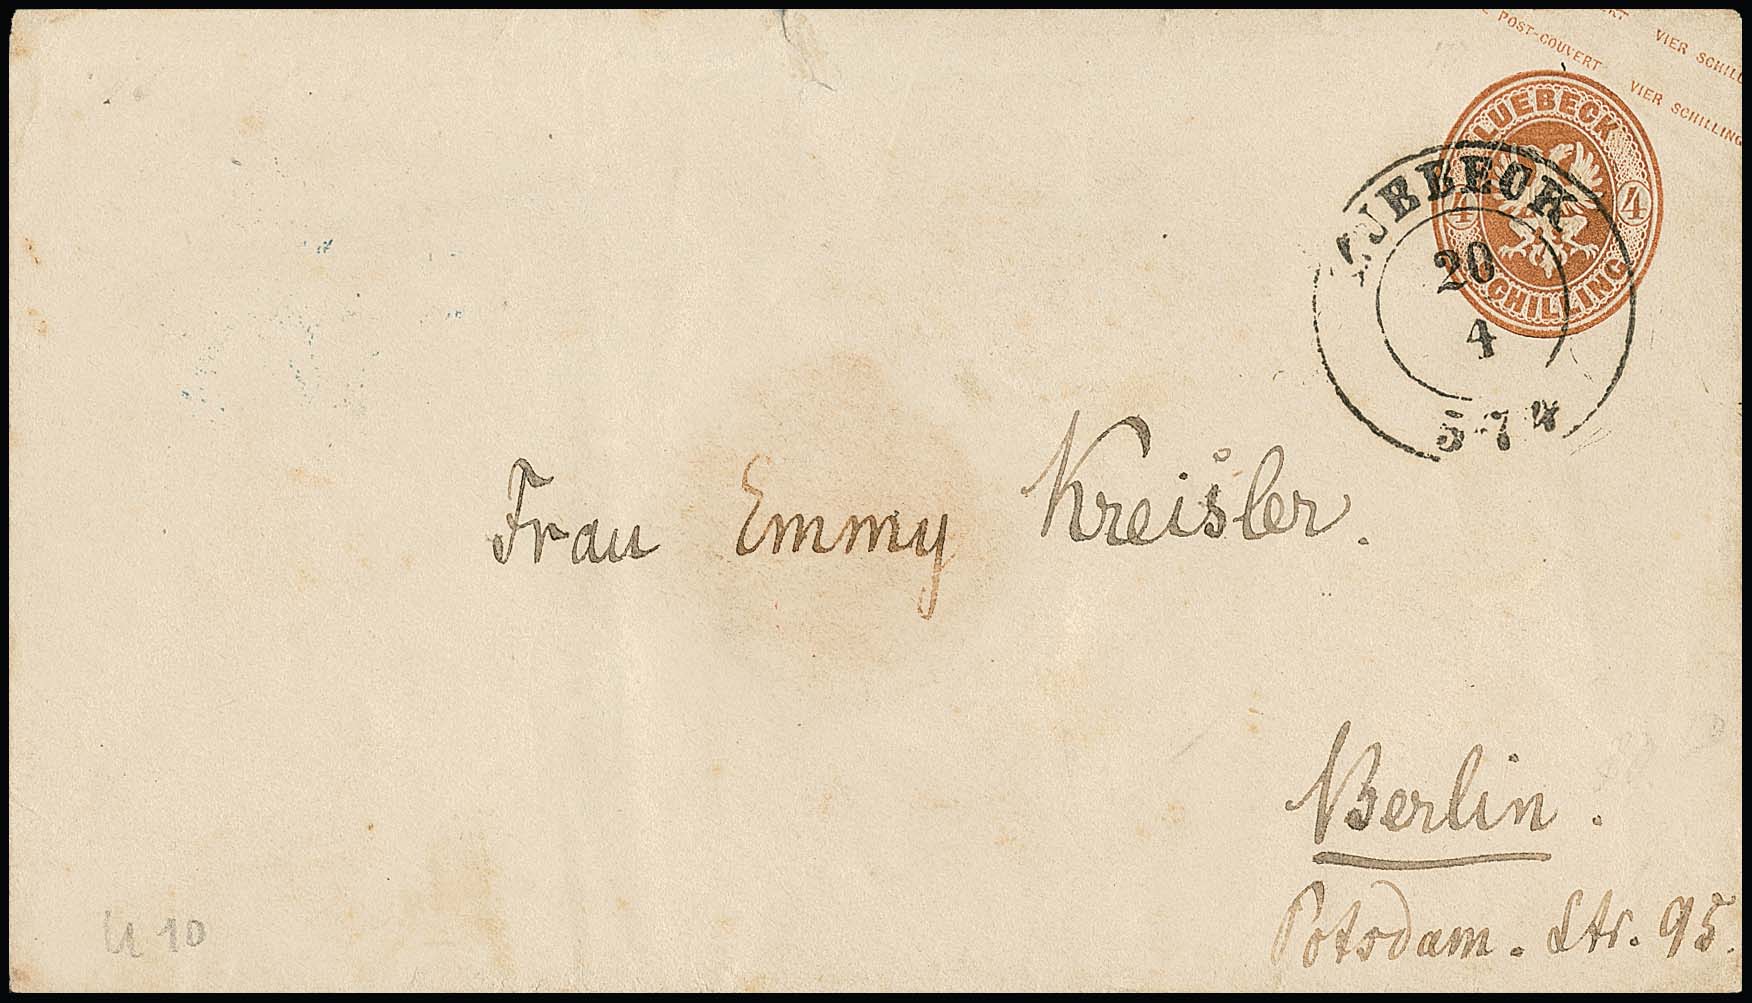 POST-COUVERT VIER SCHILL
VIER SCHILLING
LUEBECK
4 4
SCHILLING
LUEBECK
20
4
5-7
Frau Emmy Kreisler.
Berlin.
Potsdam. Str. 95.
U 10